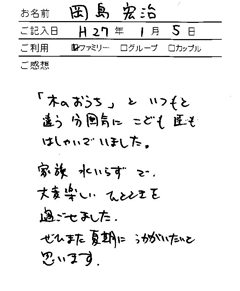 お名前 岡島 宏治
ご記入日 H27年 1月 5日
ご利用 ☑ファミリー □グループ □カップル
ご感想
「木のおうち」と いつもと
違う 分囲気に こども達も
はしゃいでいました。
家族 水いらず で、
大変楽しい ひとときを
過ごせました。
ぜひまた夏期に うかがいたいと
思います。